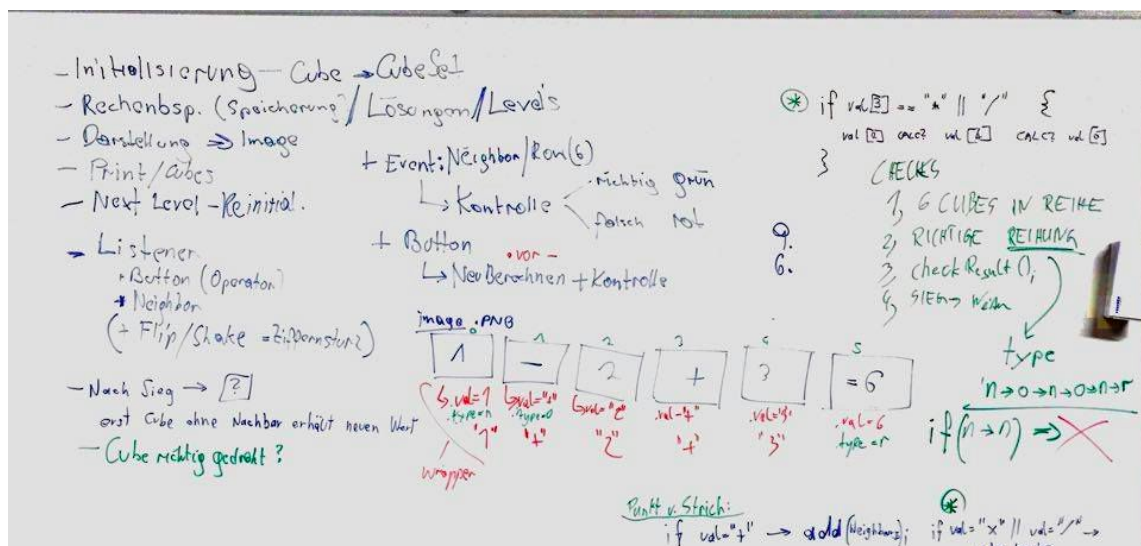 - Initialisierung - Cube → CubeSet
- Rechenbsp. (Speicherung) / Lösungen / Level's
- Darstellung ⇒ Image
- Print/Cubes
- Next Level - Reinitial.
- Listener
+ Button (Operator)
+ Neighbor
(+ Flip/Shake = Ziffernsturz)
- Nach Sieg → [?]
erst Cube ohne Nachbar erhält neuen Wert
- Cube richtig gedreht?
+ Event: Neighbor/Row(6)
↳ Kontrolle
richtig grün
falsch rot
+ Button
• vor -
↳ Neu Berechnen + Kontrolle
image.PNG
0 1 2 3 4 5
1 - 2 + 3 =6
↳.val=1 ↳val="+" ↳val="2" .val="+" .val="3" .val=6
.type=n .type=o type=r
"1" "+" "2" "+" "3"
wrapper
9.
6.
* if val[3] == "*" || "/" {
CALC? CALC?
}
CHECKS
1, 6 CUBES IN REIHE
2, RICHTIGE REIHUNG
3, checkResult();
4, SIEG → Weiter
type
n→o→n→o→n→r
if(n→n) ⇒ X
Punkt v. Strich:
if val="+" → add(Neighbors);
*
if val="x" || val="/" →